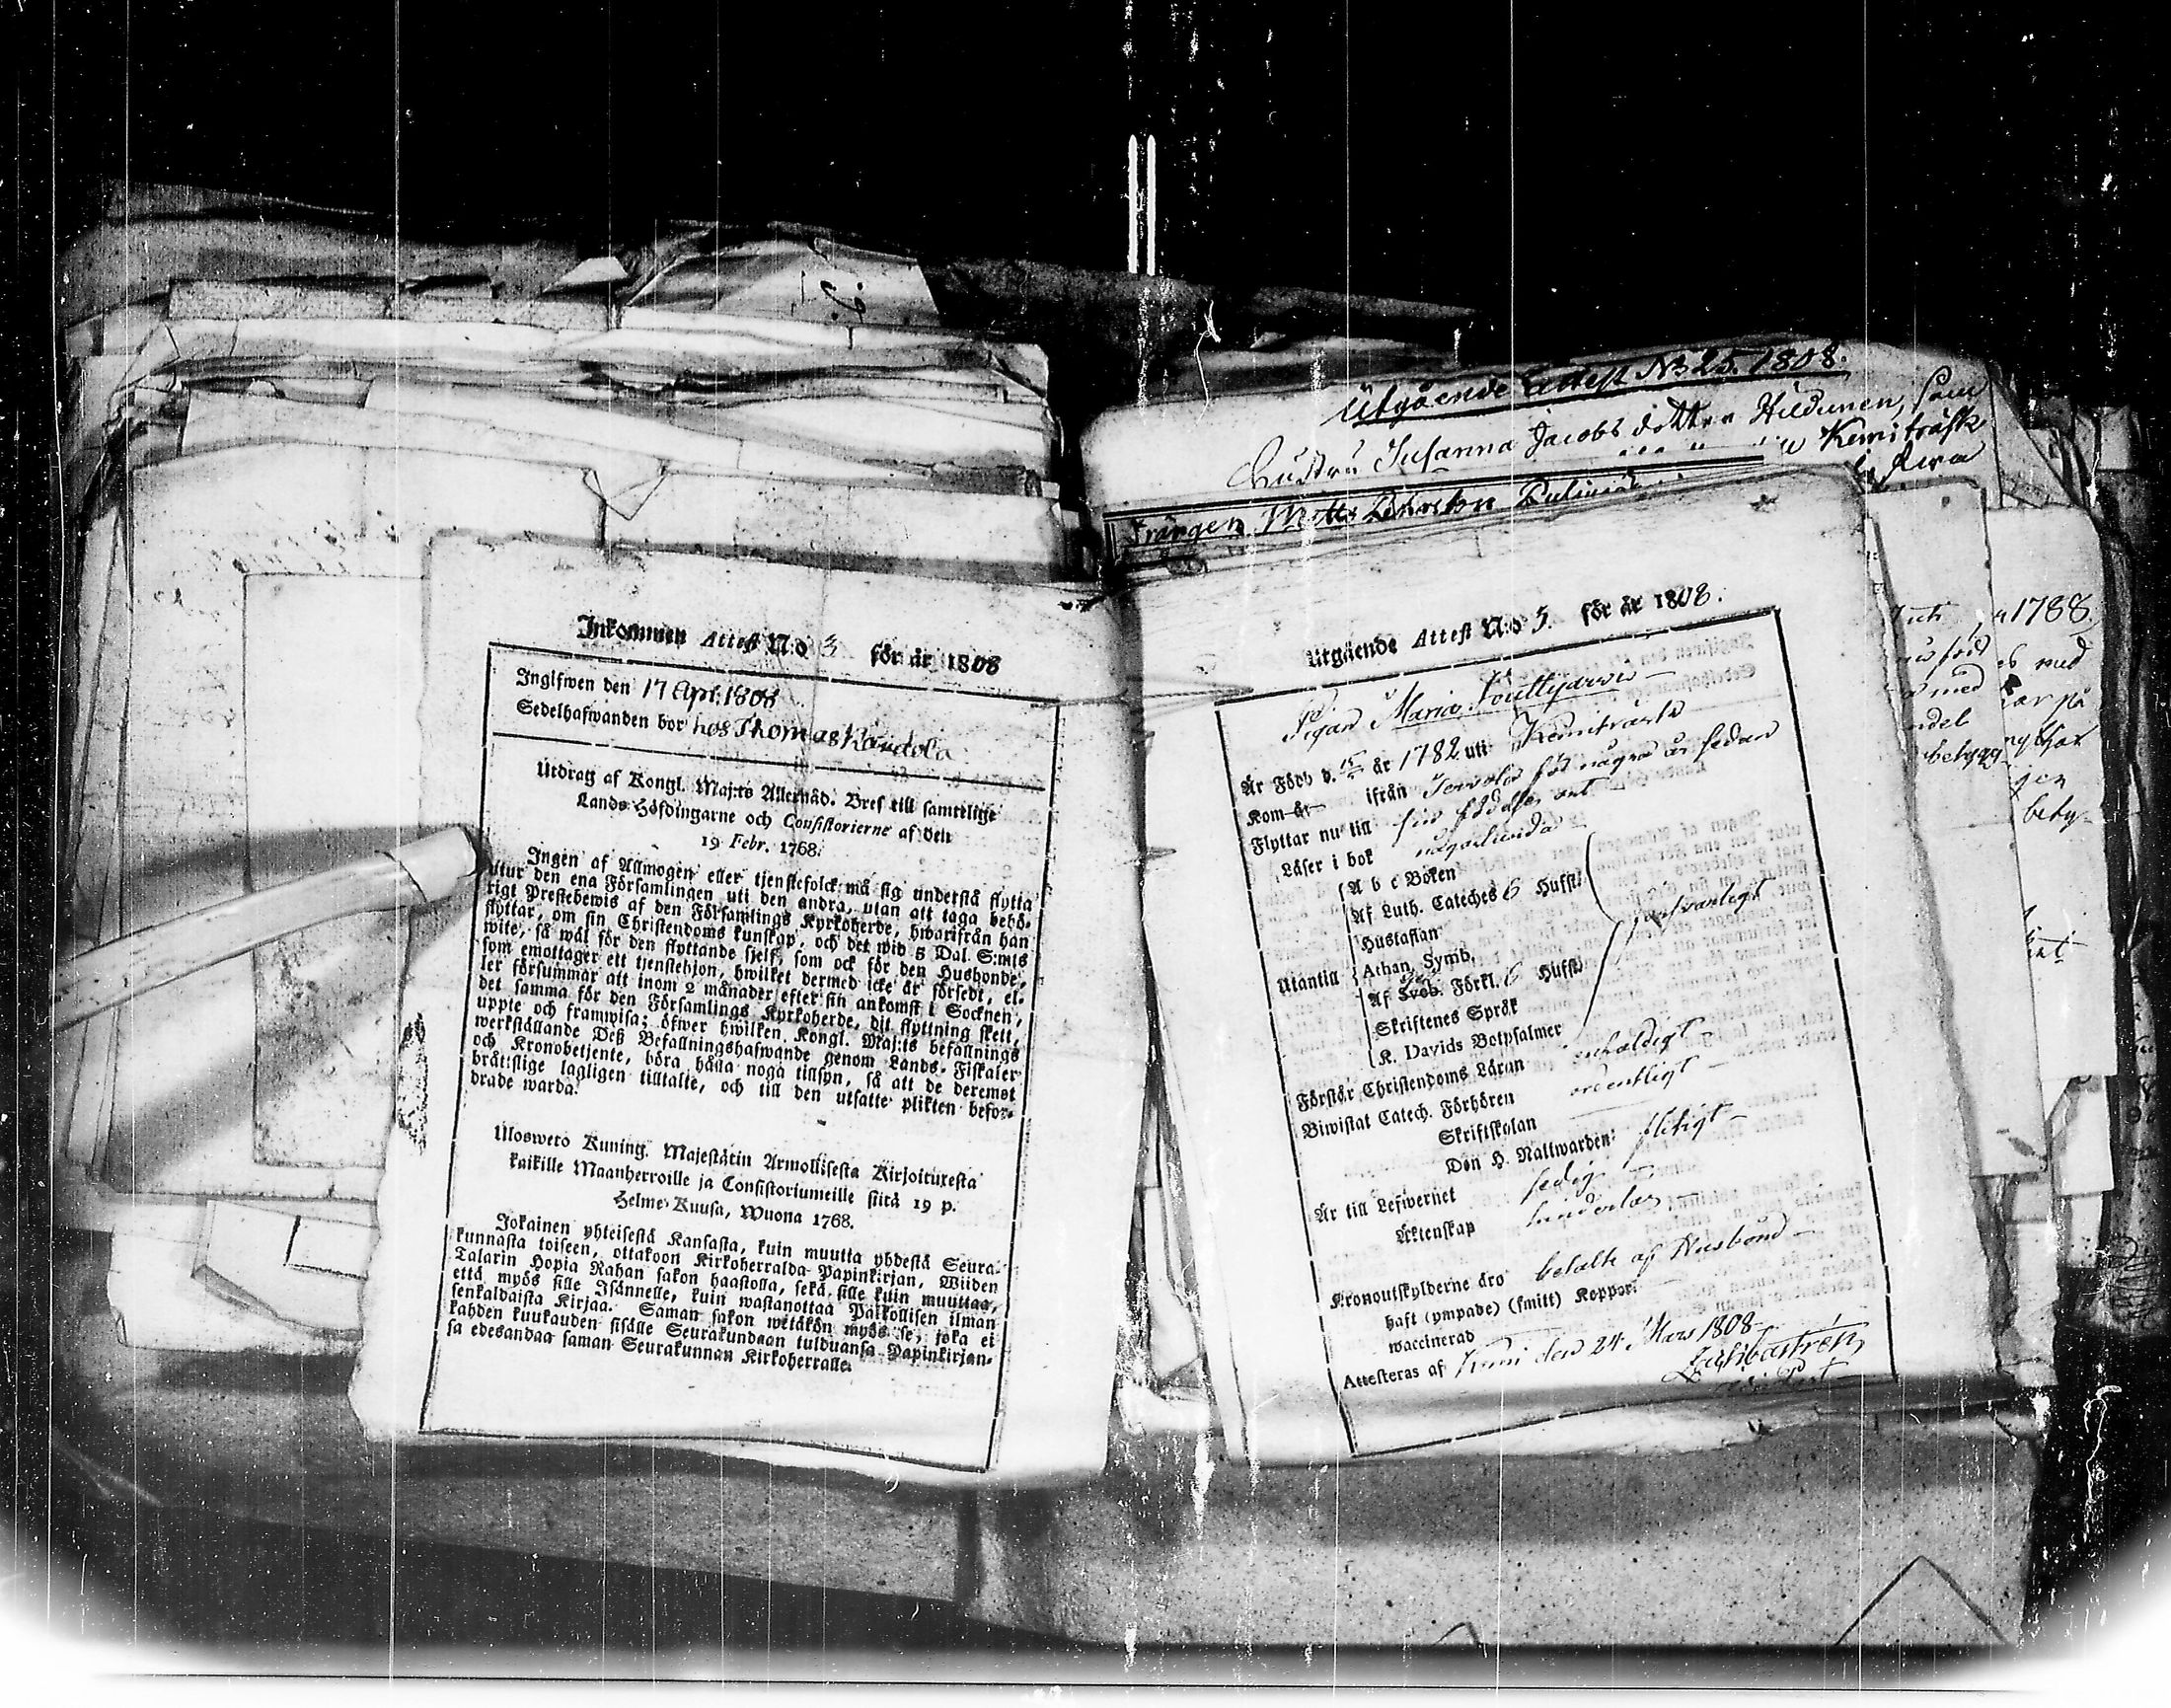 Inkommen Attest N:o 3 för år 1808
Ingifwen den 17 Apr. 1808
Sedelhafwanden bor hos Thomas Kandola
Utdrag af Kongl. Maj:ts Allernåd. Bref till samtelige
Lands-Höfdingarne och Consistorierne af den
19 Febr. 1768.
Ingen af Allmogen eller tjenstefolck må sig understå flytta
utur den ena Församlingen uti den andra, utan att taga behö-
rigt Prestebewis af den Församlings Kyrkoherde, hwarifrån han
flyttar, om sin Christendoms kunskap, och det wid 5 Dal. S:mts
wite, så wäl för den flyttande sjelf, som ock för den Husbonde,
som emottager ett tjenstehjon, hwilket dermed icke är försedt, el-
ler försummar att inom 2 månader efter sin ankomst i Socknen,
det samma för den Församlings Kyrkoherde, dit flyttning skett,
uppte och framwisa; öfwer hwilken Kongl. Maj:ts befallnings
werkställande Deß Befallningshafwande genom Lands-Fiskaler
och Kronobetjente, böra hålla noga tillsyn, så att de deremot
bråtslige lagligen tilltalte, och till den utsatte plikten befor-
drade warda.
Uloswero Kuning. Majestätin Armollisesta Kirjoituxesta
kaikille Maanherroille ja Consistoriumeille siitä 19 p.
Helme-Kuusa, Wuona 1768.
Jokainen yhteisestä Kansasta, kuin muutta yhdestä Seura-
kunnasta toiseen, ottakoon Kirkoherralda Papinkirjan, Wiiden
Talarin Hopia Rahan sakon haastolla, sekä sille kuin muuttaa,
että myös sille Isännelle, kuin wastanottaa Palkollisen ilman
senkaldaista Kirjaa. Saman sakon wetäkön myös se, joka ei
kahden kuukauden sisälle Seurakundaan tulduansa Papinkirjan-
sa edesandaa saman Seurakunnan Kirkoherralle.
Utgående Attest No 25. 1808.
Hustru Susanna Jacobs dotter Hildunen, som
Kemiträsk
Drängen Matts
Utgående Attest N:o 5. för år 1808.
Pigan Maria
Är Född d. år 1782 uti Kemiträsk
Kom år ifrån Tervola för några år sedan
Flyttar nu till sin födelse ort
Läser i bok någorlunda
A b c Boken
Af Luth. Cateches 6 Hufst.
Hustaflan
försvarligt
Athan. Symb.
Utantill
Af Sveb. Förkl. 6 Hufst.
Skriftenes Språk
K. Davids Botpsalmer
Förstår Christendoms Läran enfaldigt
Biwistat Catech. Förhören ordentligt
Skriftskolan
Den H. Nattwarden flitigt
Är till Lefwernet sedig
Äktenskap hinderlös
Kronoutskylderne äro betalte af Husbond
haft (ympade) (smitt) Koppor
waccinerad
Attesteras af Kemi den 24 Mars 1808
1788.